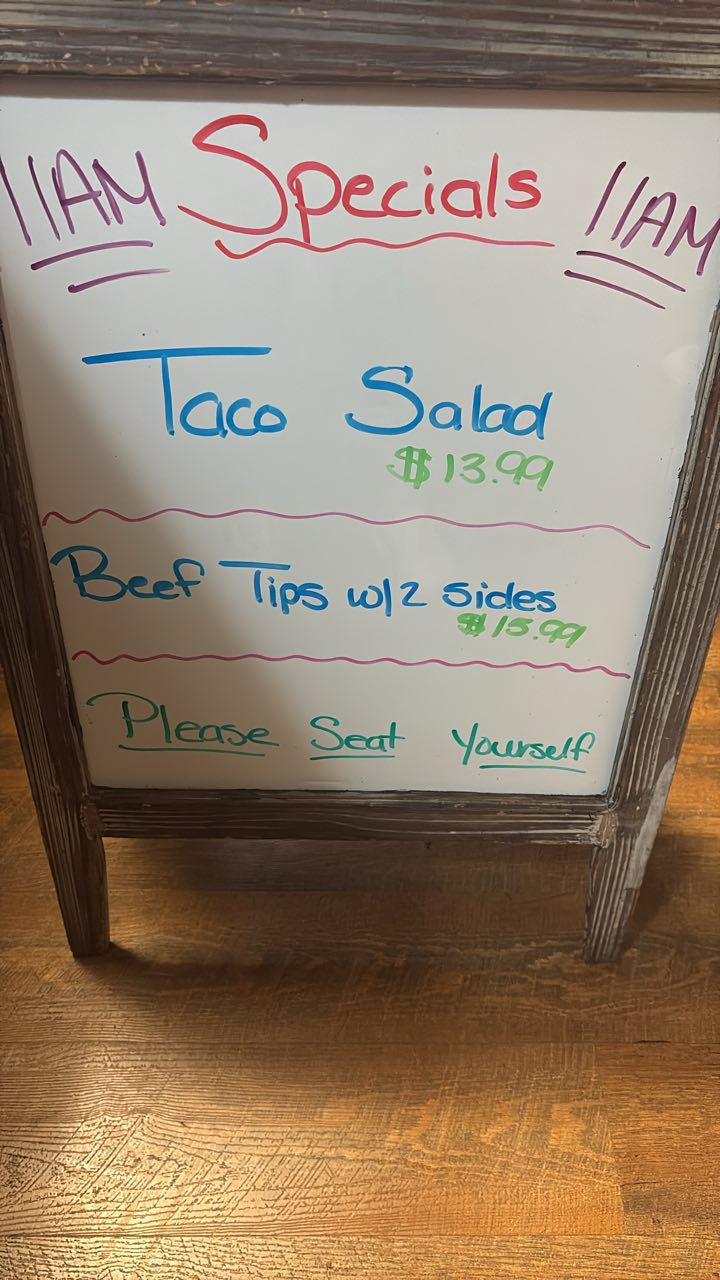 11AM Specials 11AM
Taco Salad
$13.99
Beef Tips w/2 sides
$15.99
Please Seat Yourself